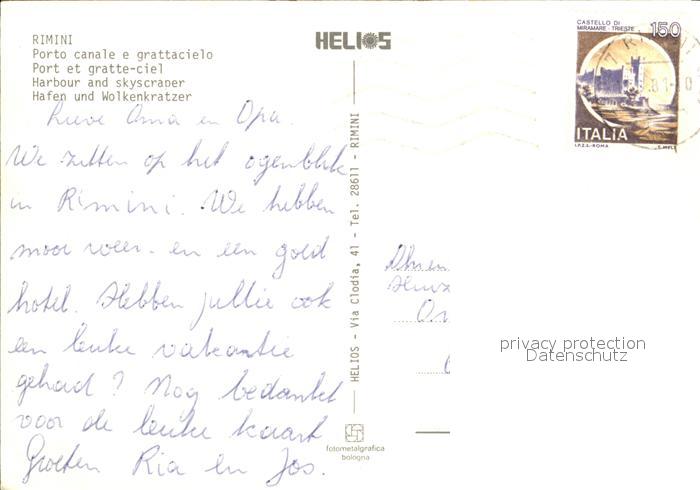 RIMINI
Porto canale e grattacielo
Port et gratte-ciel
Harbour and skyscraper
Hafen und Wolkenkratzer
HELIOS
CASTELLO DI
MIRAMARE - TRIESTE
150
ITALIA
I.P.Z.S. - ROMA
Lieve Oma en Opa.
We zitten op het ogenblik
in Rimini. We hebben
mooi weer en een goed
hotel. Hebben jullie ook
een leuke vakantie
gehad? Nog bedankt
voor de leuke kaart
Groeten Ria en Jos.
HELIOS - Via Clodia, 41 - Tel. 28611 - RIMINI
privacy protection
Datenschutz
fotometalgrafica
bologna